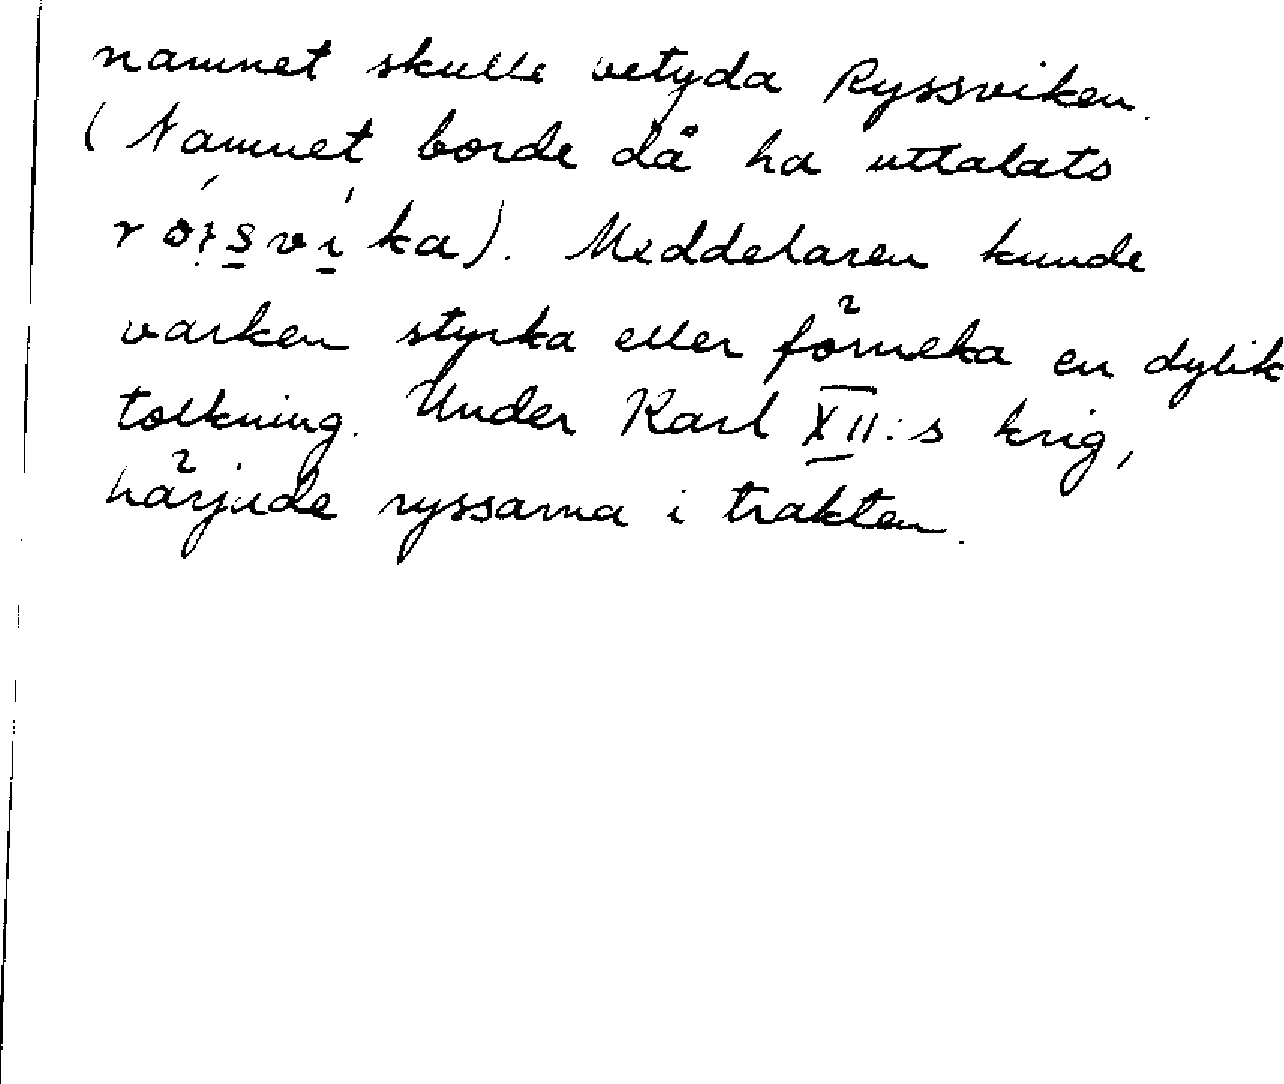 namnet skulle betyda Ryssviken.
(Namnet borde då ha uttalats
rórsvíka). Meddelaren kunde
varken styrka eller förneka en dylik
tolkning. Under Karl XII:s krig,
härjade ryssarna i trakten.